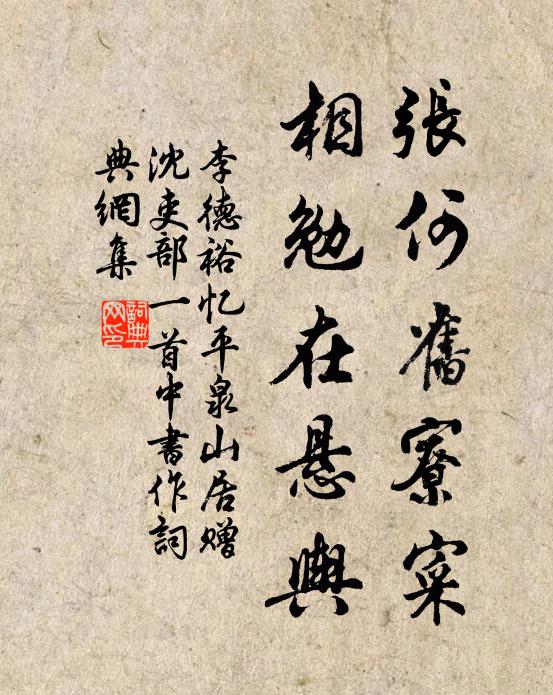 張何舊寮寀
相勉在悬輿
李德裕忆平泉山居赠
沈吏部一首中書作詞
典網集
詞典網印